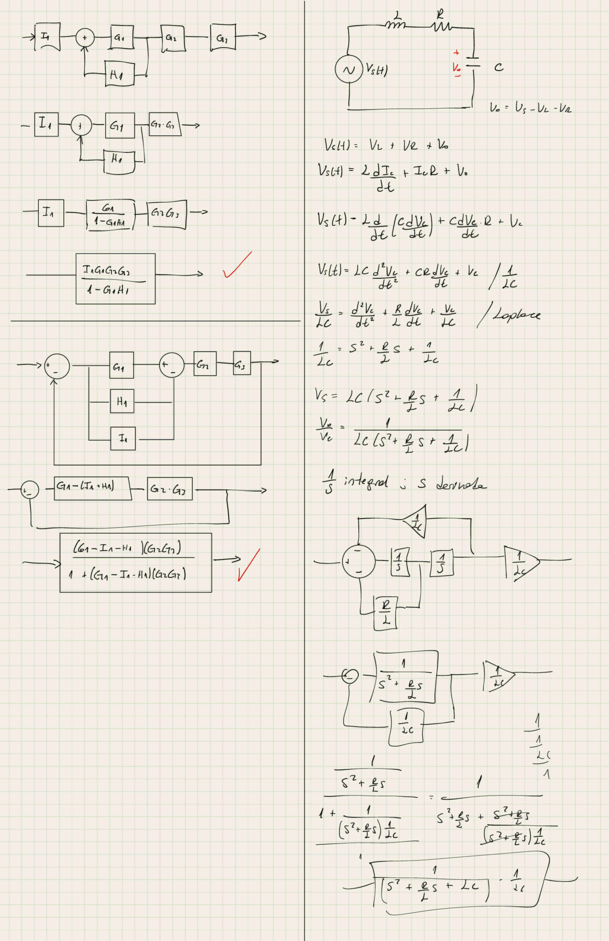 I1 + G1 G2 G3
H1
I1 + G1 G2·G3
H1
I1 G1/(1-G1H1) G2G3
I1G1G2G3/(1-G1H1)
+ - G1 + - G2 G3
H1
I1
- G1-(I1+H1) G2·G3
(G1-I1-H1)(G2G3)/(1+(G1-I1-H1)(G2G3))
L R
Vs(t) + Vo - C
Vo = Vs - VL - VR
Vs(t) = VL + VR + Vo
Vs(t) = L dIc/dt + IcR + Vo
Vs(t) = L d/dt (C dVc/dt) + C dVc/dt · R + Vc
Vs(t) = LC d²Vc/dt² + CR dVc/dt + Vc / 1/LC
Vs/LC = d²Vc/dt² + R/L dVc/dt + Vc/LC / Laplace
1/LC = S² + R/L S + 1/LC
Vs = LC (S² + R/L S + 1/LC)
1/(LC (S² + R/L S + 1/LC))
1/S integral ; S derivada
1/LC
- - 1/S 1/S 1/LC
R/L
- 1/(S² + R/L S) 1/LC
1/LC
1/(1/LC)/1
(1/(S² + R/L S))/(1 + 1/((S² + R/L S) 1/LC)) = 1/(S² + R/L S + (S² + R/L S)/((S² + R/L S) 1/LC))
1/(S² + R/L S + LC) · 1/LC